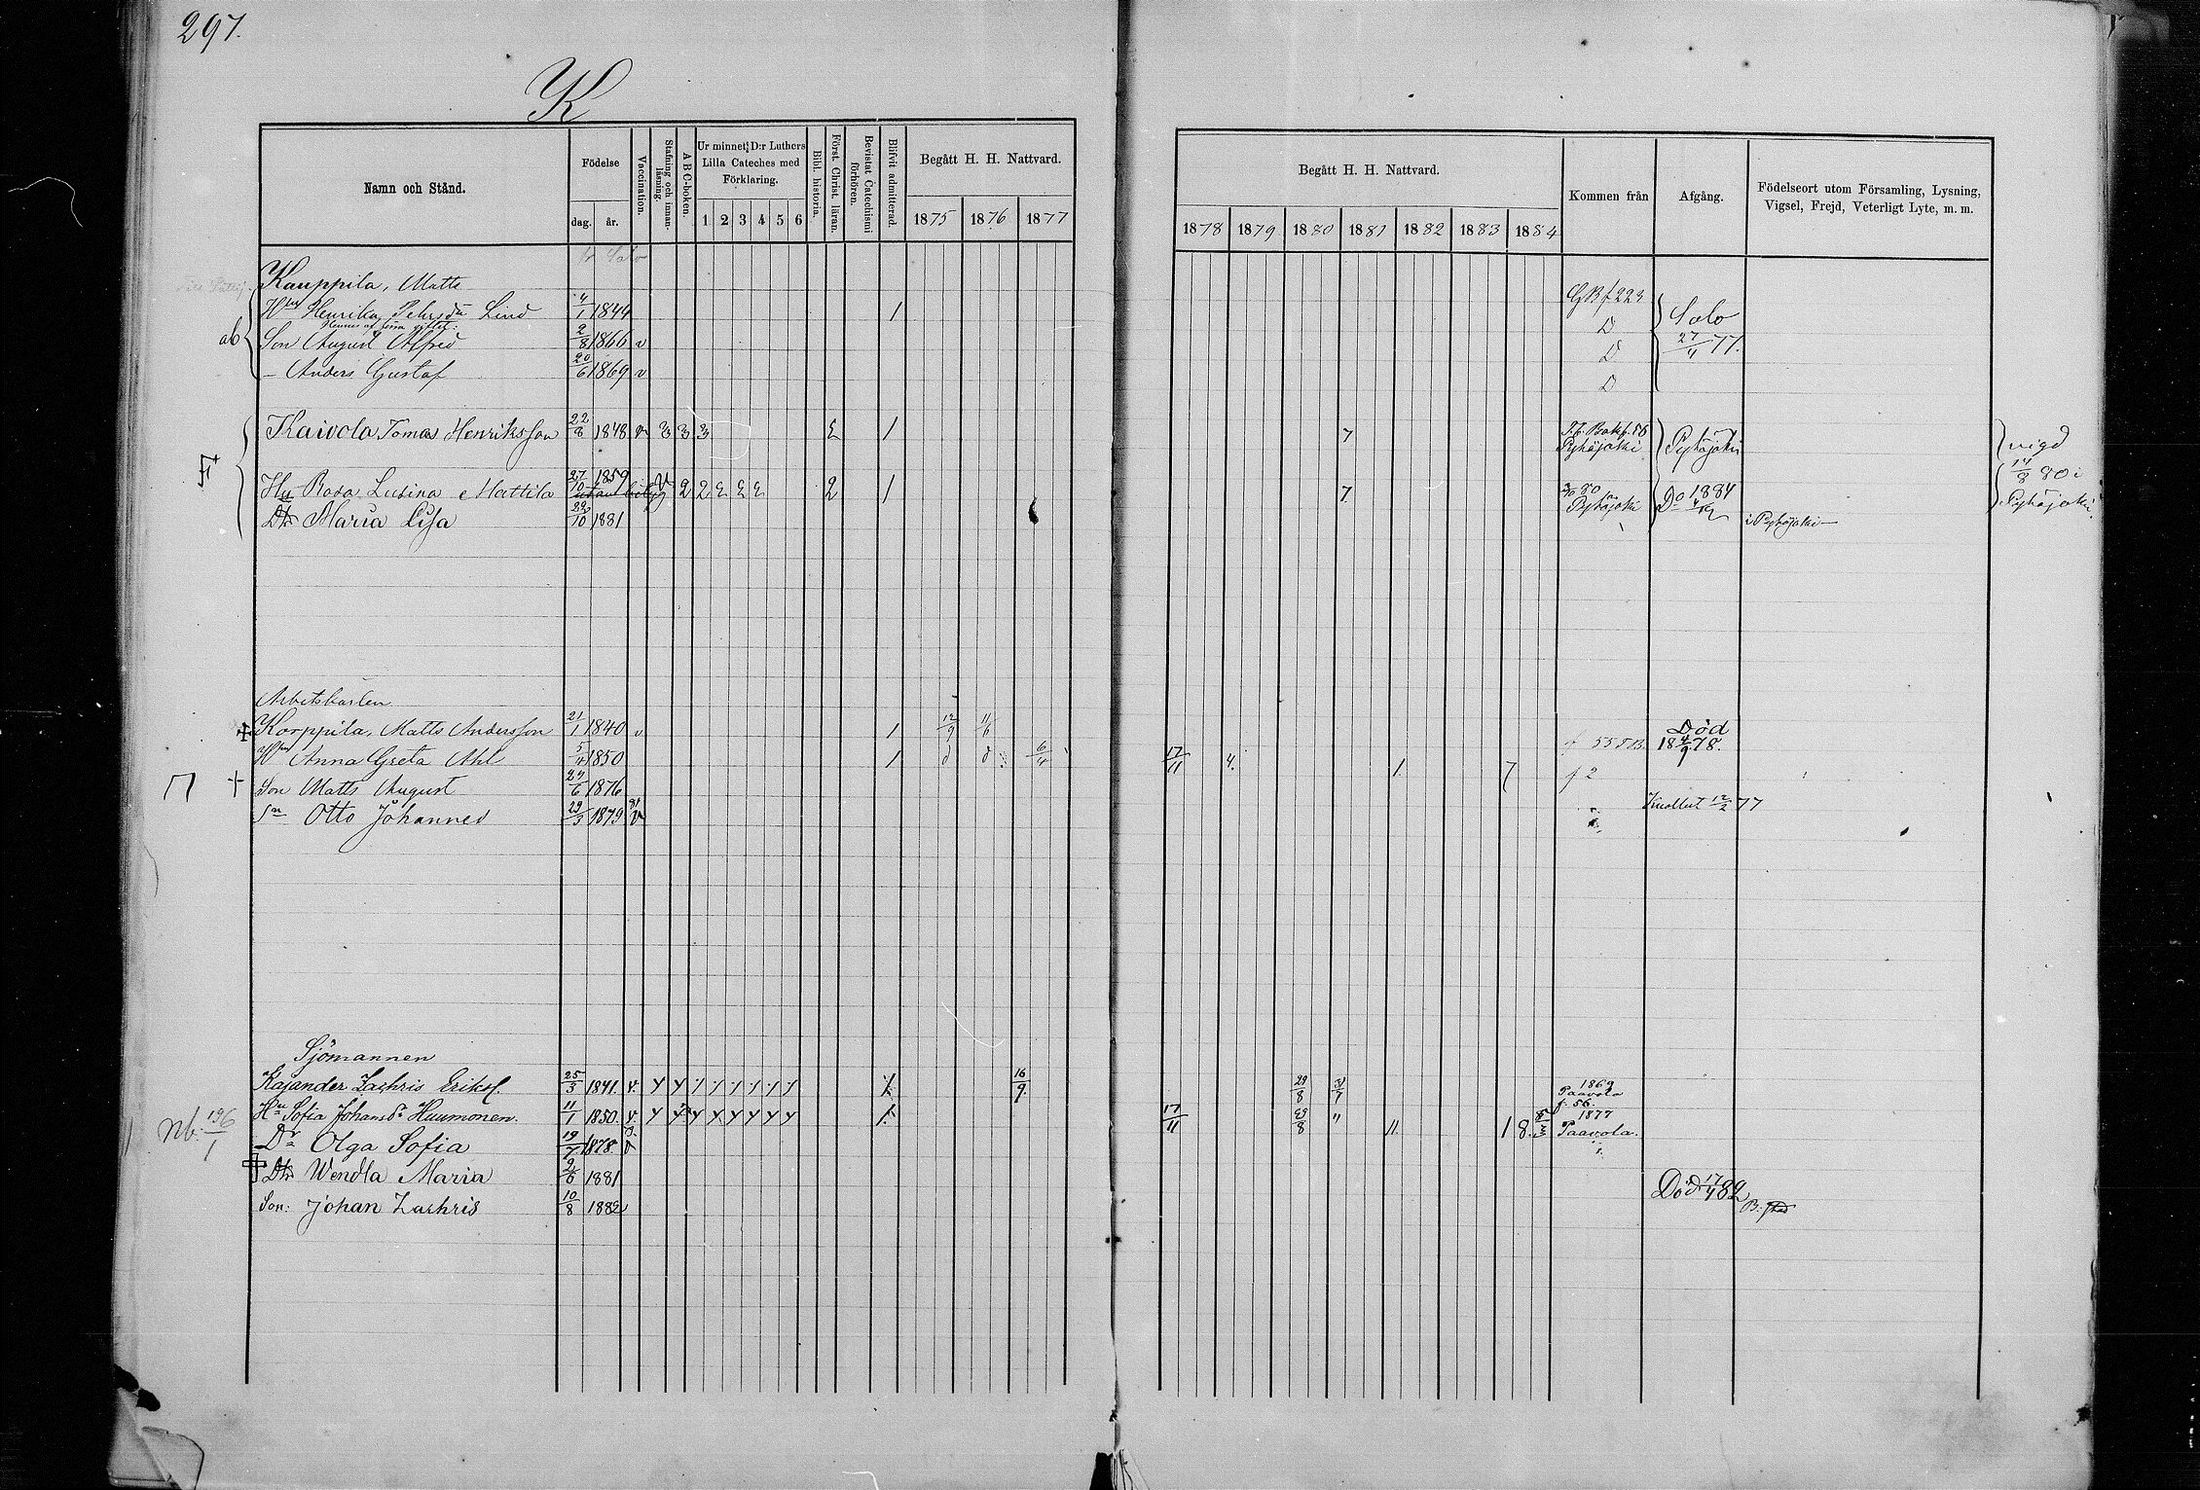 297.
K
Namn och Stånd.
Födelse
dag. år.
Vaccination.
Stafning och innanläsning.
A B C-boken.
Ur minnet: D:r Luthers Lilla Cateches med Förklaring.
1 2 3 4 5 6
Bibl. historia.
Först. Christ. läran.
Bevistat Catechismi förhören.
Blifvit admitterad.
Begått H. H. Nattvard.
1875 1876 1877
Begått H. H. Nattvard.
1878 1879 1880 1881 1882 1883 1884
Kommen från
Afgång.
Födelseort utom Församling, Lysning, Vigsel, Frejd, Veterligt Lyte, m. m.
Kauppila, Matts
Hu Henrika Pehrsdr Lind 4/1 1844 1 GB f 223
ab Son August Alfred 2/8 1866 v D Salo 27/4 77.
– Anders Gustaf 20/6 1869 v D
D
Kaivola Tomas Henriksson 22/8 1848 v 3 3 3 1 7 Pyhäjoki Pyhäjoki vigd
Hu Rosa Lusina Mattila 27/10 1859 2 2 2 1 7 80 Pyhäjoki Do 1884 14/8 80 i Pyhäjoki.
Dtr Maria Lisa 29/10 1881 i Pyhäjoki
Arbetskarlen
Korppila, Matts Andersson 21/1 1840 v 1 12/9 11/6 Död 18 4/9 78.
Hu Anna Greta Ahl 5/4 1850 1 d d 6/4 17/11 4. 1. 7 f 2
Son Matts August 27/6 1876
Sn Otto Johannes 29/3 1879 v 12/2 77
Sjömannen
Kajander Zachris Eriks. 25/3 1841. 16/9. 29/8 1869 Paavola f. 56.
Nb. 196/1 Hu Sofia Johansdr Huumonen. 11/1 1850. 17/11 29/8 " 11. 1 8. 1877 Paavola.
Dr Olga Sofia 19/7 1878. v
Dtr Wendla Maria 2/6 1881 Död 17/4 82
Son: Johan Zachris 10/8 1882 B. stad